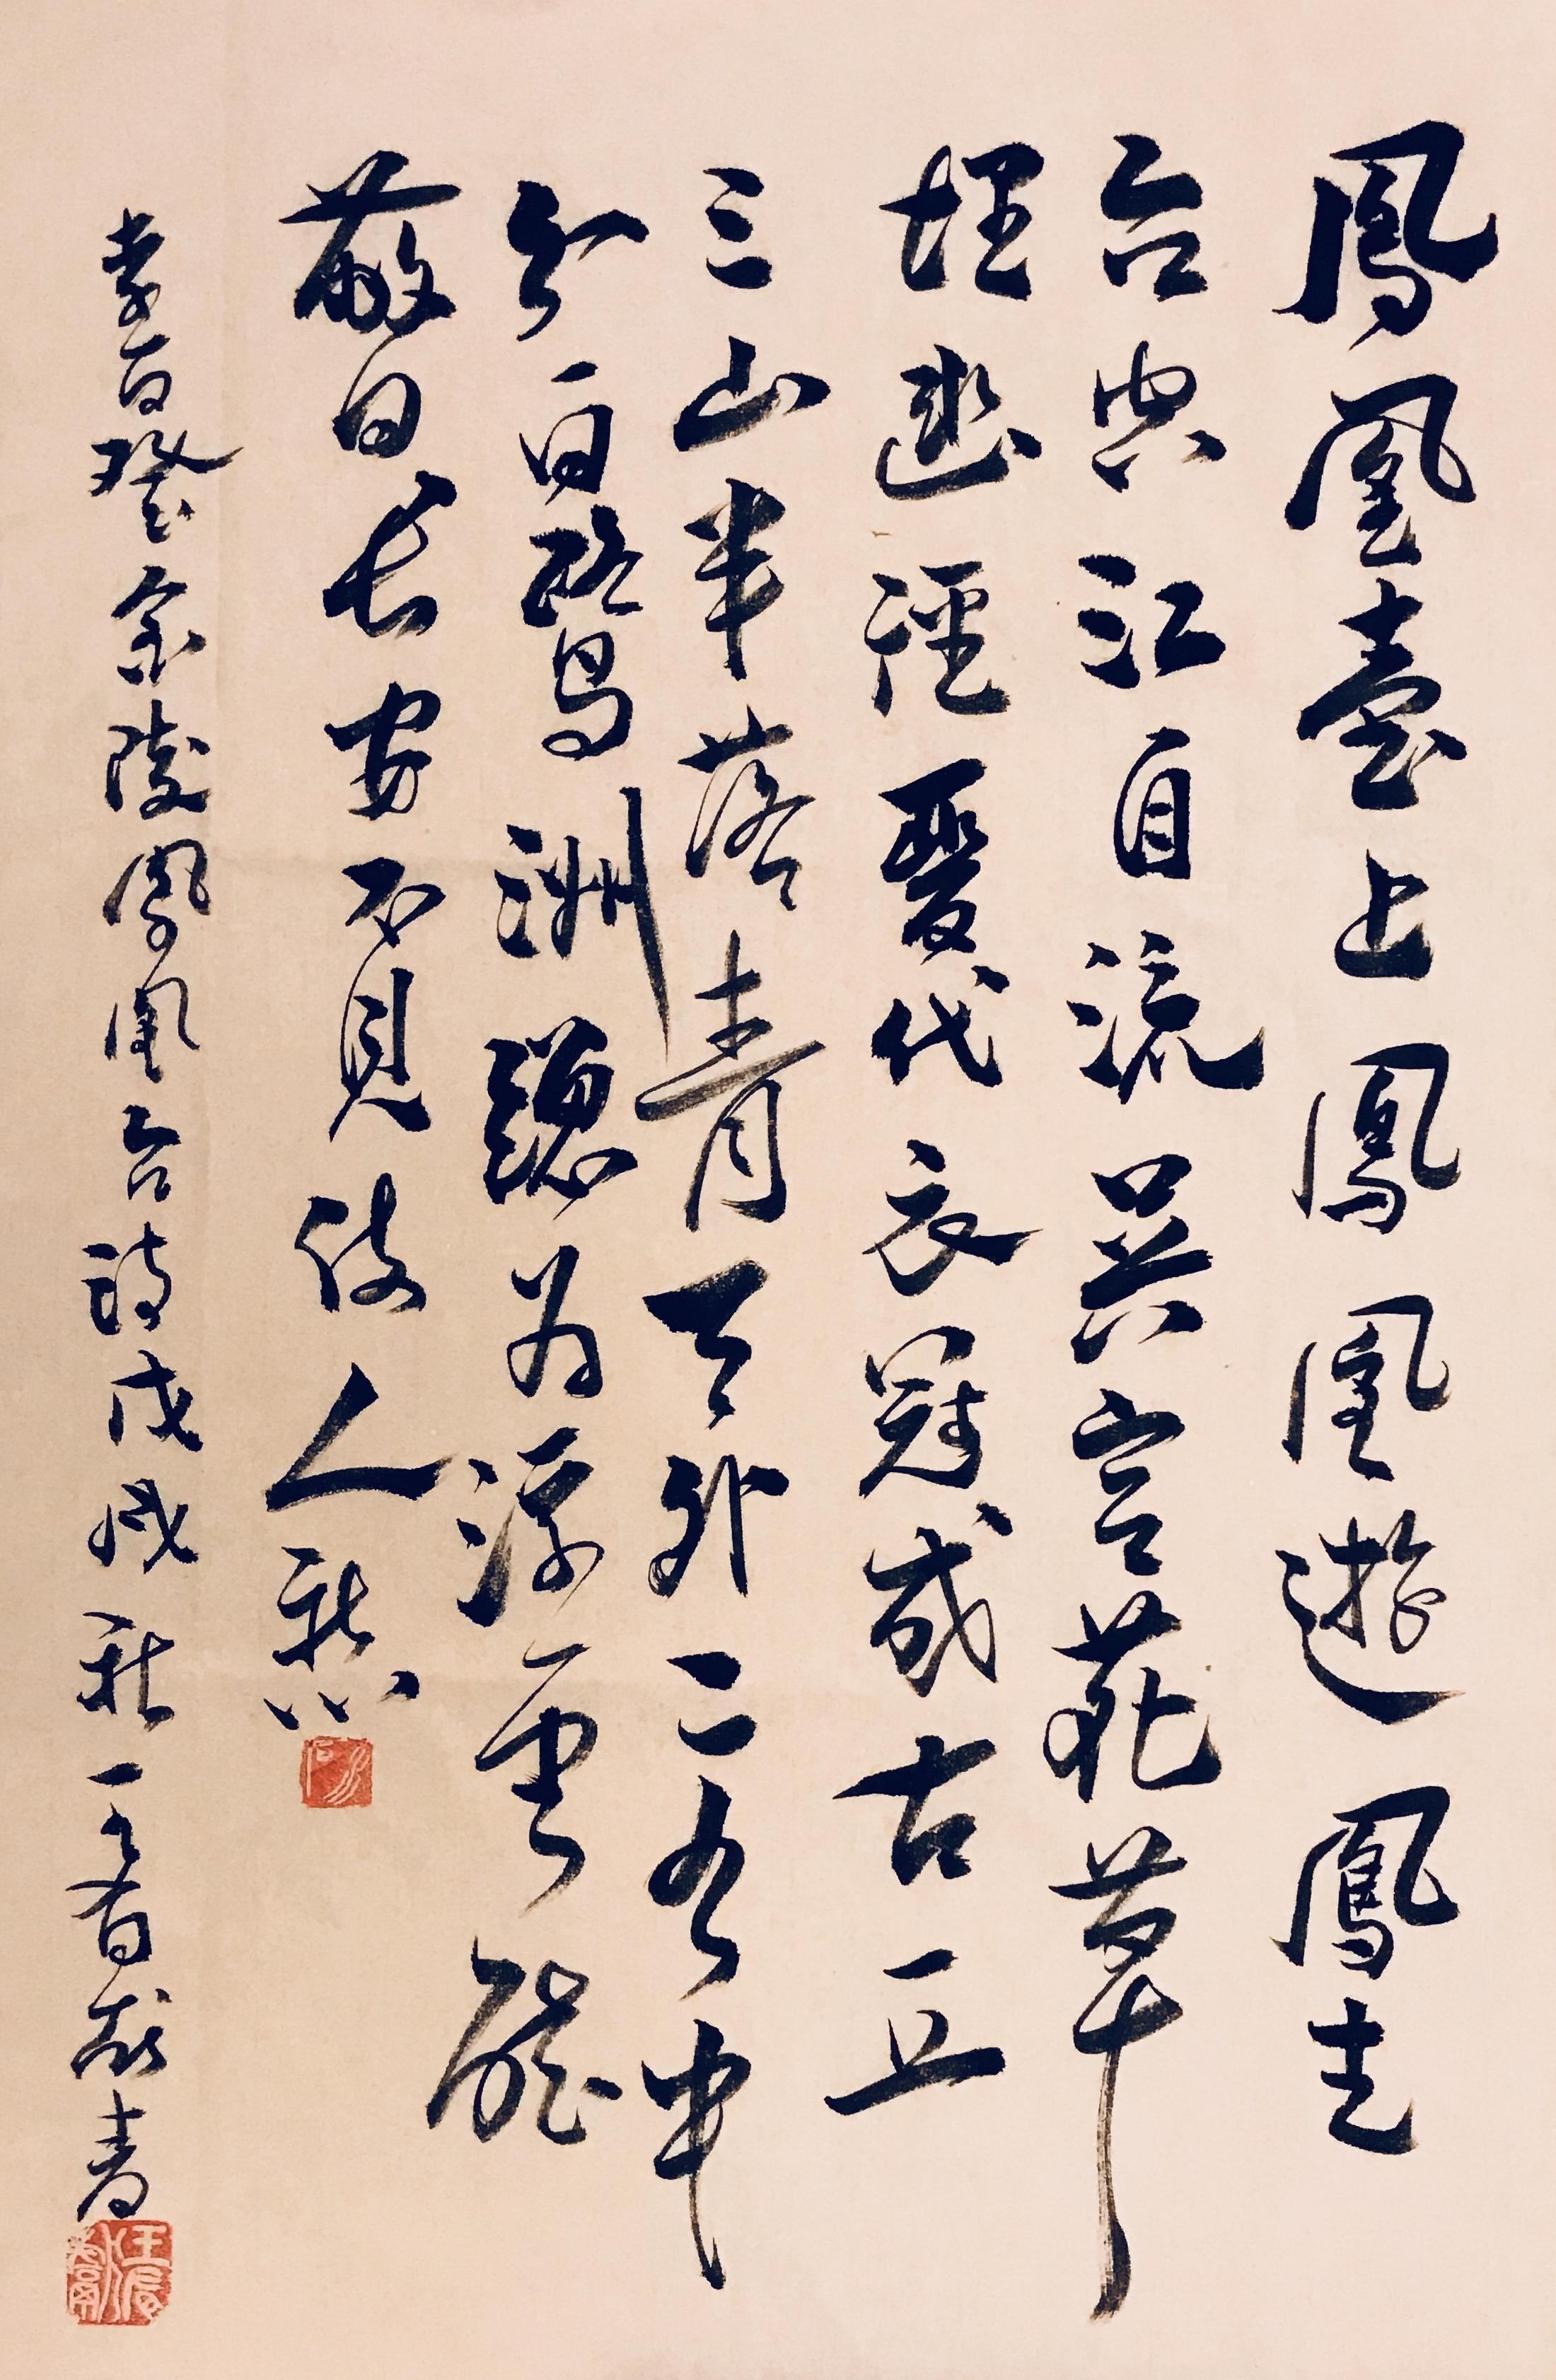 鳳凰臺上鳳凰遊鳳去
台空江自流吴宫花草
埋幽徑晉代衣冠成古丘
三山半落青天外二水中
分白鹭洲總为浮雲能
蔽日長安不見使人愁
李白登金陵鳳凰台詩戊戌秋書